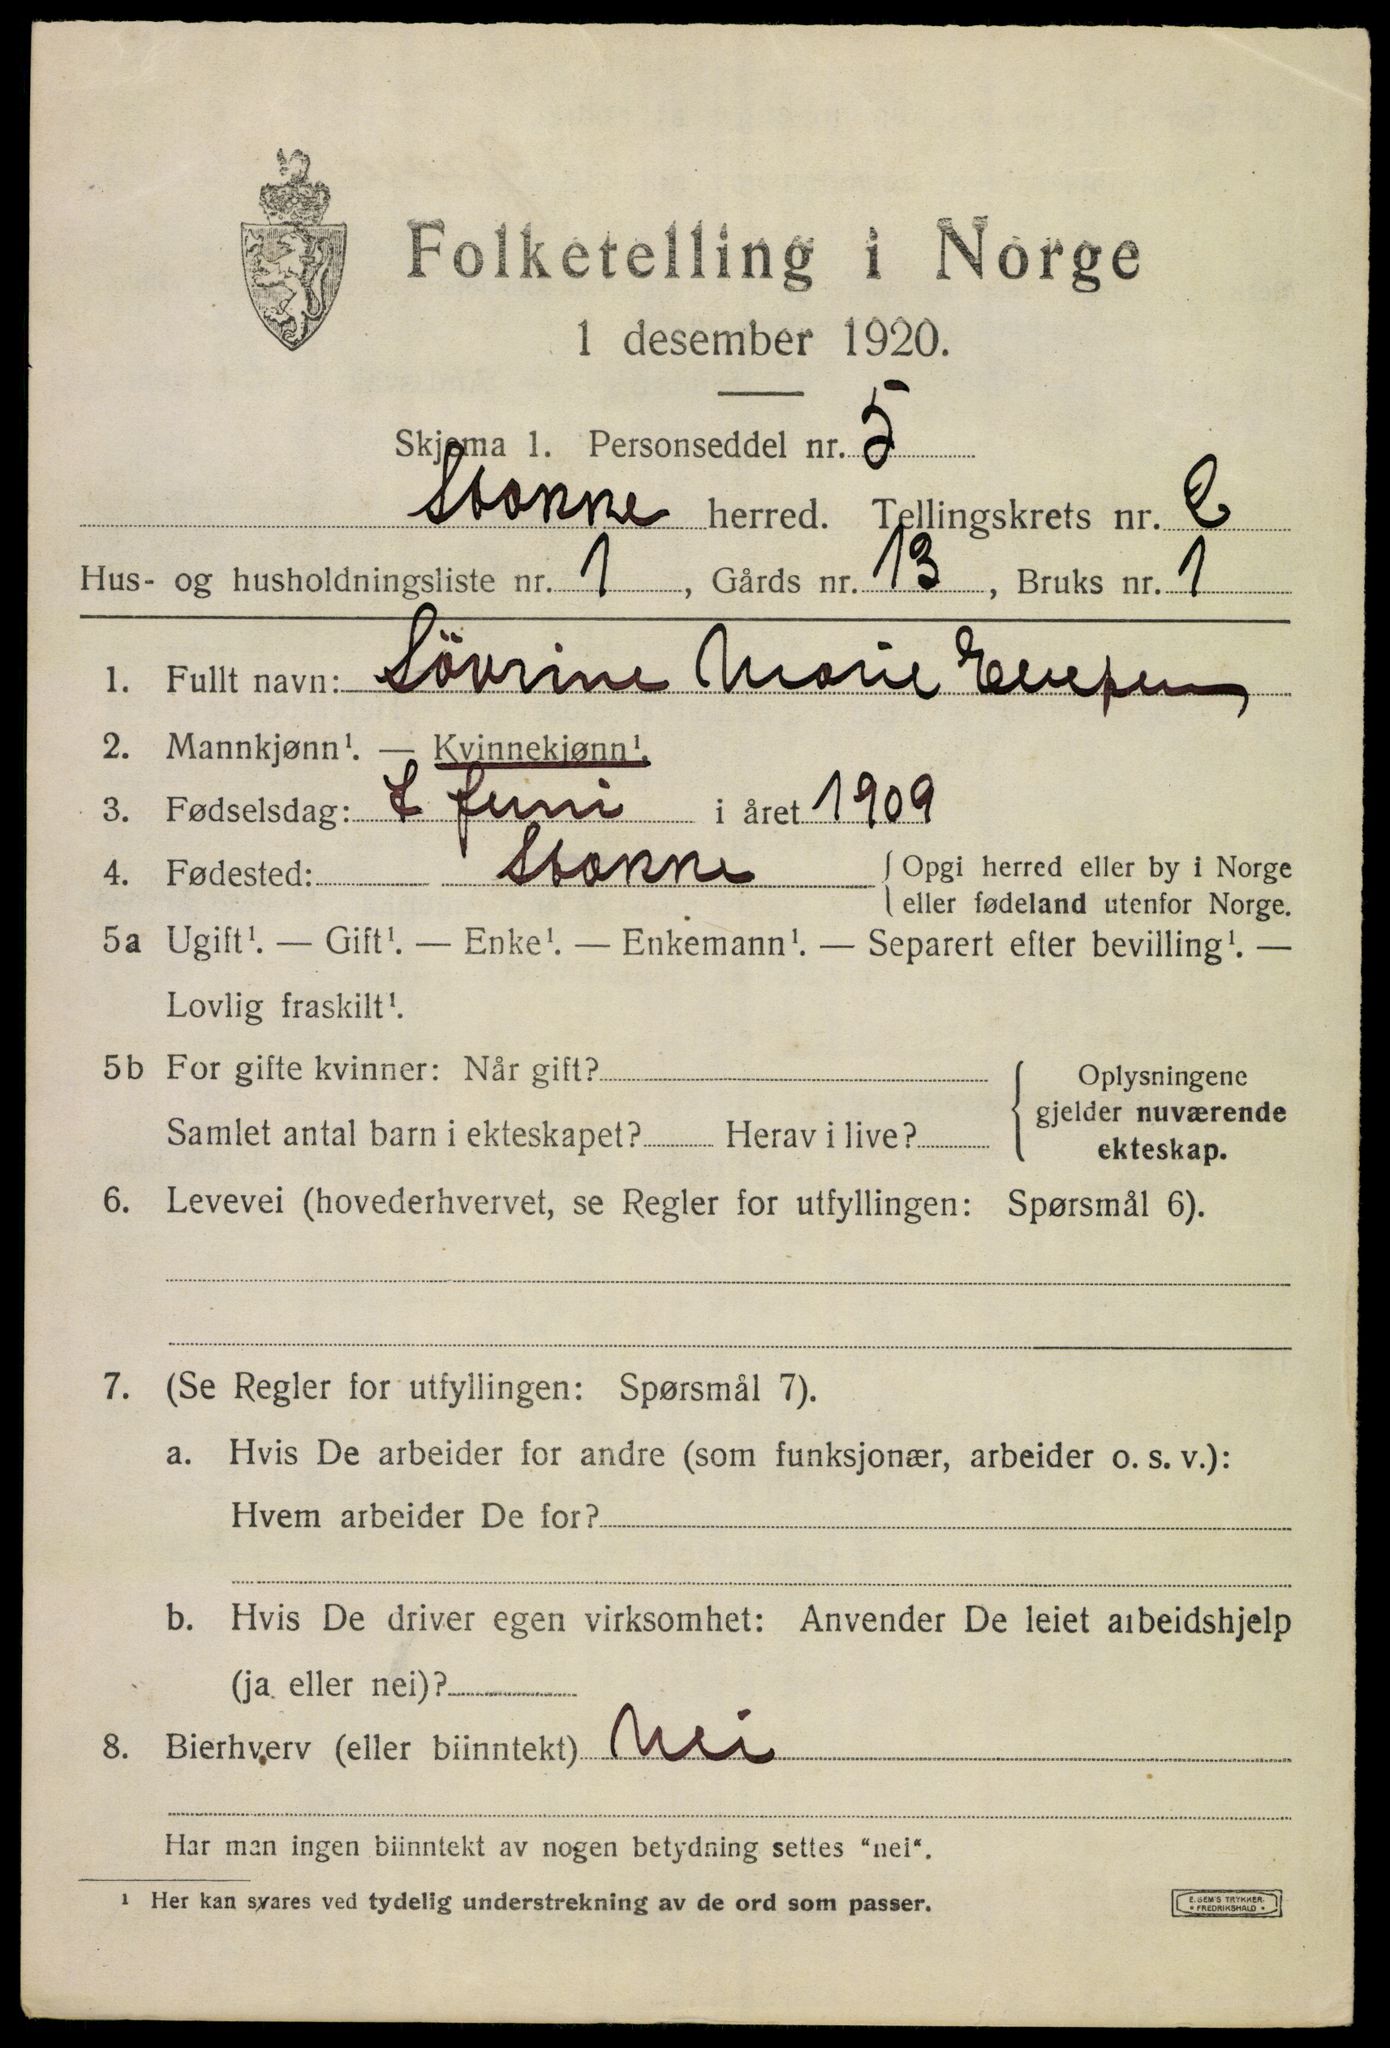 Folketelling i Norge
1 desember 1920.
Skjema 1. Personseddel nr. 5
Stokke herred. Tellingskrets nr. 2
Hus- og husholdningsliste nr. 1, Gårds nr. 13, Bruks nr. 1
1. Fullt navn: Sövrine Marie
2. Mannkjønn¹. — Kvinnekjønn¹.
3. Fødselsdag: juni i året 1909
4. Fødested: Stokke { Opgi herred eller by i Norge
eller fødeland utenfor Norge.
5a Ugift¹. — Gift¹. — Enke¹. — Enkemann¹. — Separert efter bevilling¹. —
Lovlig fraskilt¹.
5b For gifte kvinner: Når gift?
Samlet antal barn i ekteskapet? Herav i live?
{ Oplysningene
gjelder nuværende
ekteskap.
6. Levevei (hovederhvervet, se Regler for utfyllingen: Spørsmål 6).
7. (Se Regler for utfyllingen: Spørsmål 7).
a. Hvis De arbeider for andre (som funksjonær, arbeider o. s. v.):
Hvem arbeider De for?
b. Hvis De driver egen virksomhet: Anvender De leiet arbeidshjelp
(ja eller nei)?
8. Bierhverv (eller biinntekt) Nei
Har man ingen biinntekt av nogen betydning settes “nei“.
¹ Her kan svares ved tydelig understrekning av de ord som passer.
E. SEM'S TRYKKERI
* FREDRIKSHALD *